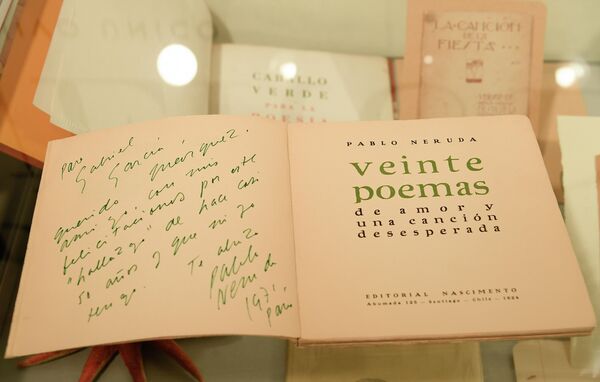 CABALLO
VERDE
PARA LA
POESIA
LA CANCIÓN
DE LA
FIESTA
para
Gabriel
García Márquez,
querido
amigo, con mis
felicitaciones por este
"hallazgo" de hace casi
50 años y que yo no
tengo. Te abraza
Pablo
Neruda
197
París
PABLO NERUDA
veinte
poemas
de amor y
una canción
desesperada
EDITORIAL NASCIMENTO
Ahumada 125 — Santiago — Chile — 1924